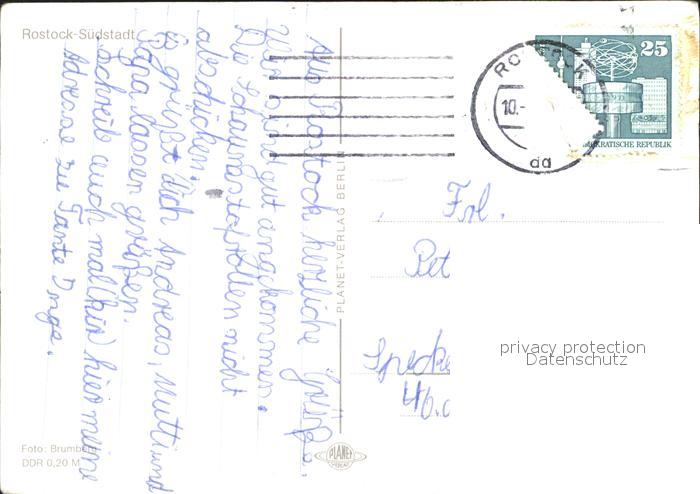 Rostock-Südstadt
Aus Rostock herzliche Grüße.
Wir sind gut angekommen.
Die Schaumstoffrollen nicht
abschicken.
Es grüßt Dich Andreas, Mutti und
Papa lassen grüßen.
Schreib auch mal hin hier meine
Adresse zu Tante Inge.
Foto: Brumbe
DDR 0,20 M
PLANET-VERLAG BERLIN
PLANET
VERLAG
RO
10.-
da
25
DEMOKRATISCHE REPUBLIK
Frl.
Pet
privacy protection
Datenschutz